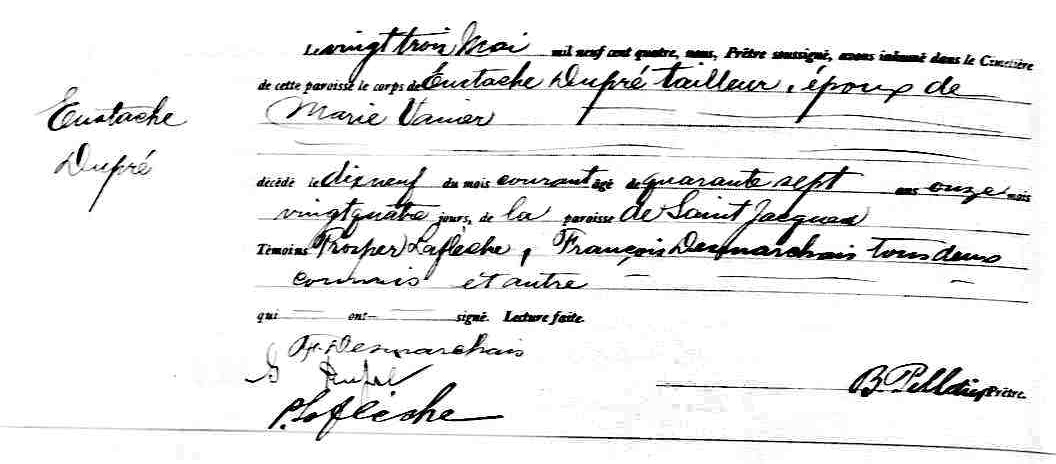 Le vingt trois Mai mil neuf cent quatre, nous, Prêtre soussigné, avons inhumé dans le Cimetière
de cette paroisse le corps de Eustache Dupré tailleur, époux de
Marie Vanier
Eustache
Dupré
décédé le dix neuf du mois courant âgé de quarante sept ans onze mois
vingt quatre jours, de la paroisse de Saint Jacques
Témoins Prosper Laflèche, François Desmarchais tous deux
commis et autre
qui ont signé. Lecture faite.
Fr. Desmarchais
P. Laflèche
B. Pelletier Prêtre.